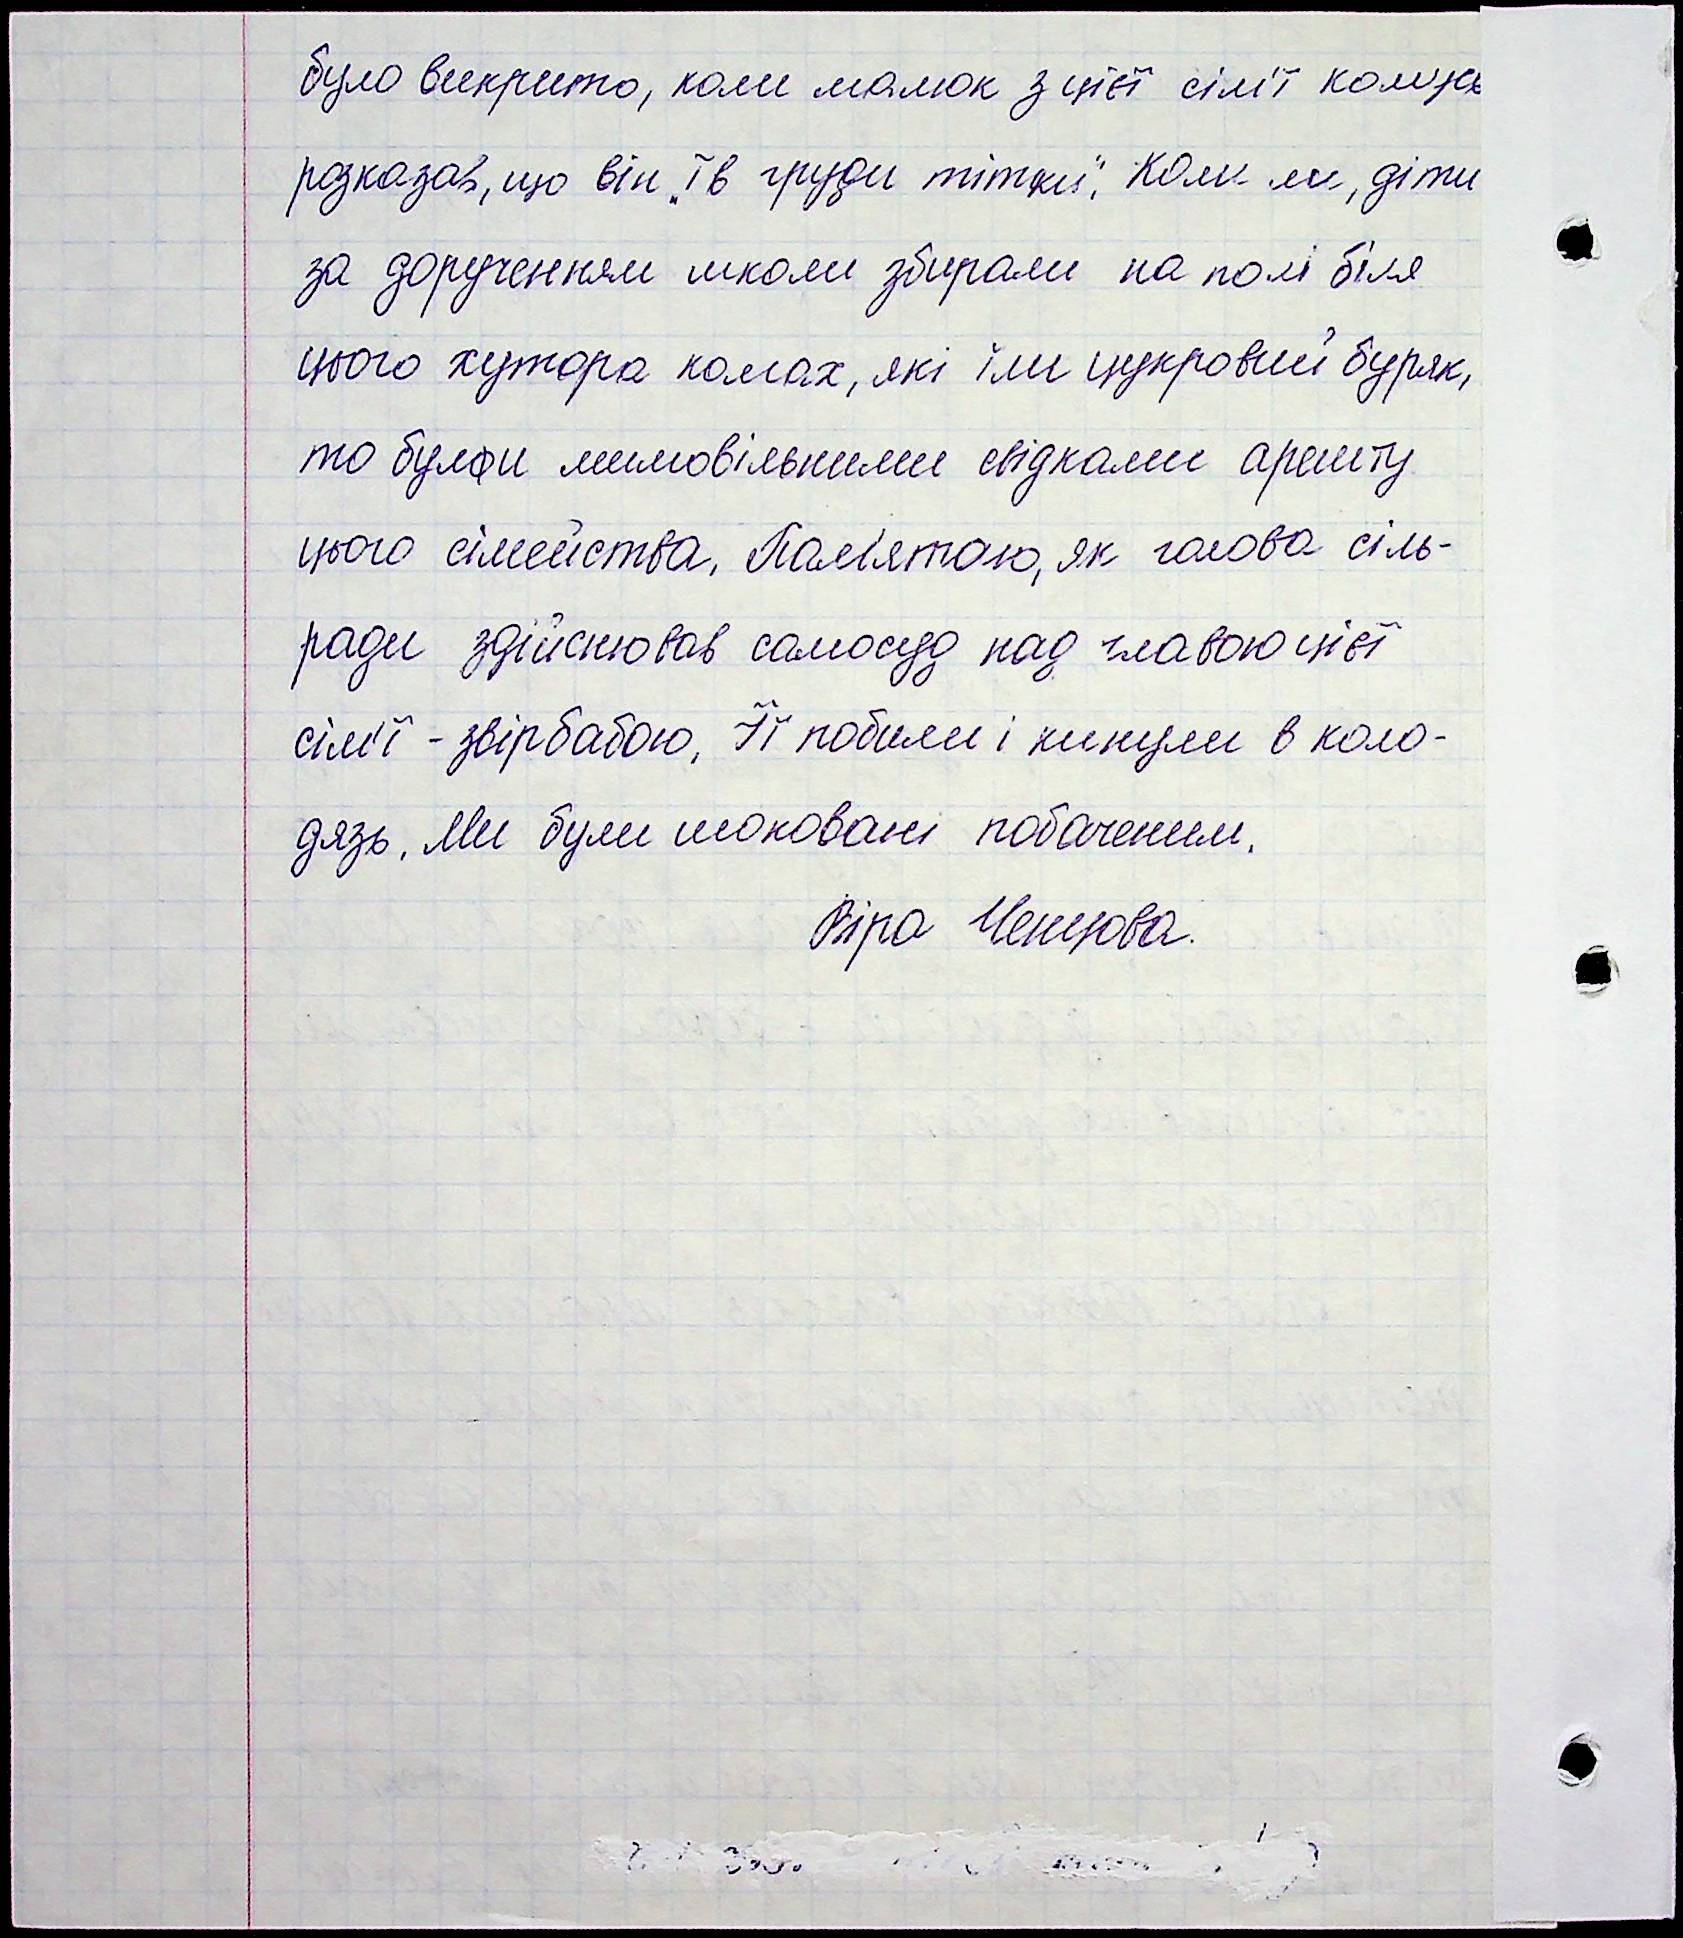 було викрито, коли малюк з цієї сім'ї комусь
розказав, що він „їв груди тітки". Коли ми, діти
за дорученням школи збирали на полі біля
цього хутора комах, які їли цукровий буряк,
то були мимовільними свідками арешту
цього сімейства. Пам'ятаю, як голова сіль-
ради здійснював самосуд над главою цієї
сім'ї - звірбабою. Її побили і кинули в коло-
дязь. Ми були шоковані побаченим.
Віра Ченцова.